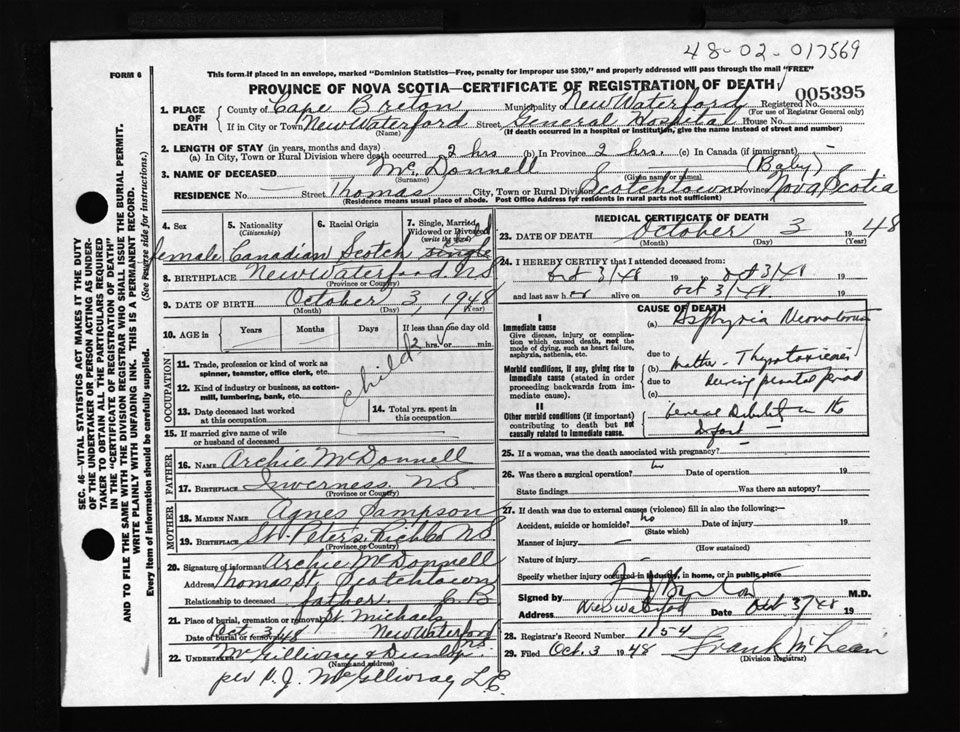 48-02-017569
FORM 6
This form if placed in an envelope, marked "Dominion Statistics—Free, penalty for improper use $300," and properly addressed will pass through the mail "FREE"
PROVINCE OF NOVA SCOTIA—CERTIFICATE OF REGISTRATION OF DEATH
005395
1. PLACE OF DEATH County of Cape Breton Municipality New Waterford Registered No.
(For use of Registrar General only)
If in City or Town New Waterford Street General Hospital House No.
(Name) (If death occurred in a hospital or institution, give the name instead of street and number)
2. LENGTH OF STAY (in years, months and days)
(a) In City, Town or Rural Division where death occurred 2 hrs (b) In Province 2 hrs. (c) In Canada (if immigrant)
3. NAME OF DECEASED McDonnell (Baby)
(Surname) (Given name or names)
RESIDENCE No. Street Thomas City, Town or Rural Division Scotchtown Province Nova Scotia
(Residence means usual place of abode. Post Office Address for residents in rural parts not sufficient)
4. Sex female
5. Nationality (Citizenship) Canadian
6. Racial Origin Scotch
7. Single, Married, Widowed or Divorced (write the word) single
8. BIRTHPLACE New Waterford NS
(Province or Country)
9. DATE OF BIRTH October 3, 1948
(Month) (Day) (Year)
10. AGE in Years Months Days If less than one day old
2 hrs. or min.
OCCUPATION
11. Trade, profession or kind of work as spinner, teamster, office clerk, etc.
child
12. Kind of industry or business, as cotton-mill, lumbering, bank, etc.
13. Date deceased last worked at this occupation
14. Total yrs. spent in this occupation
15. If married give name of wife or husband of deceased
FATHER
16. NAME Archie McDonnell
17. BIRTHPLACE Inverness NS
(Province or Country)
MOTHER
18. MAIDEN NAME Agnes Sampson
19. BIRTHPLACE St. Peters Rich Co NS
(Province or Country)
20. Signature of informant Archie McDonnell
Address Thomas St. Scotchtown
Relationship to deceased father C.B
21. Place of burial, cremation or removal St. Michaels
Date of burial or removal Oct 3/48 New Waterford NS
22. UNDERTAKER McGillivray & Dunlop
(Name and address)
per P. J. McGillivray L.E.
MEDICAL CERTIFICATE OF DEATH
23. DATE OF DEATH October 3 1948
(Month) (Day) (Year)
24. I HEREBY CERTIFY that I attended deceased from:
Oct 3/48 19 to Oct 3/48 19
and last saw her alive on Oct 3/48 19
CAUSE OF DEATH
I
Immediate cause
Give disease, injury or complication which caused death, not the mode of dying, such as heart failure, asphyxia, asthenia, etc.
(a) Asphyxia Neonatorum
due to
Morbid conditions, if any, giving rise to immediate cause (stated in order proceeding backwards from immediate cause).
(b) Mother - Thyrotoxicosis
due to During prenatal period
(c)
II
Other morbid conditions (if important) contributing to death but not causally related to immediate cause.
General Debility in the
25. If a woman, was the death associated with pregnancy?
26. Was there a surgical operation? no Date of operation 19
State findings Was there an autopsy?
27. If death was due to external causes (violence) fill in also the following:—
Accident, suicide or homicide? no Date of injury 19
(State which)
Manner of injury –
(How sustained)
Nature of injury –
Specify whether injury occurred in industry, in home, or in public place
Signed by M.D.
Address New Waterford Date Oct 3/48 19
28. Registrar's Record Number 1154
29. Filed Oct. 3 1948 Frank McLean
(Division Registrar)
SEC. 46—VITAL STATISTICS ACT MAKES IT THE DUTY OF THE UNDERTAKER OR PERSON ACTING AS UNDERTAKER TO OBTAIN ALL THE PARTICULARS REQUIRED IN THE "CERTIFICATE OF REGISTRATION OF DEATH" AND TO FILE THE SAME WITH THE DIVISION REGISTRAR WHO SHALL ISSUE THE BURIAL PERMIT.
WRITE PLAINLY WITH UNFADING INK. THIS IS A PERMANENT RECORD.
Every item of information should be carefully supplied. (See reverse side for instructions.)